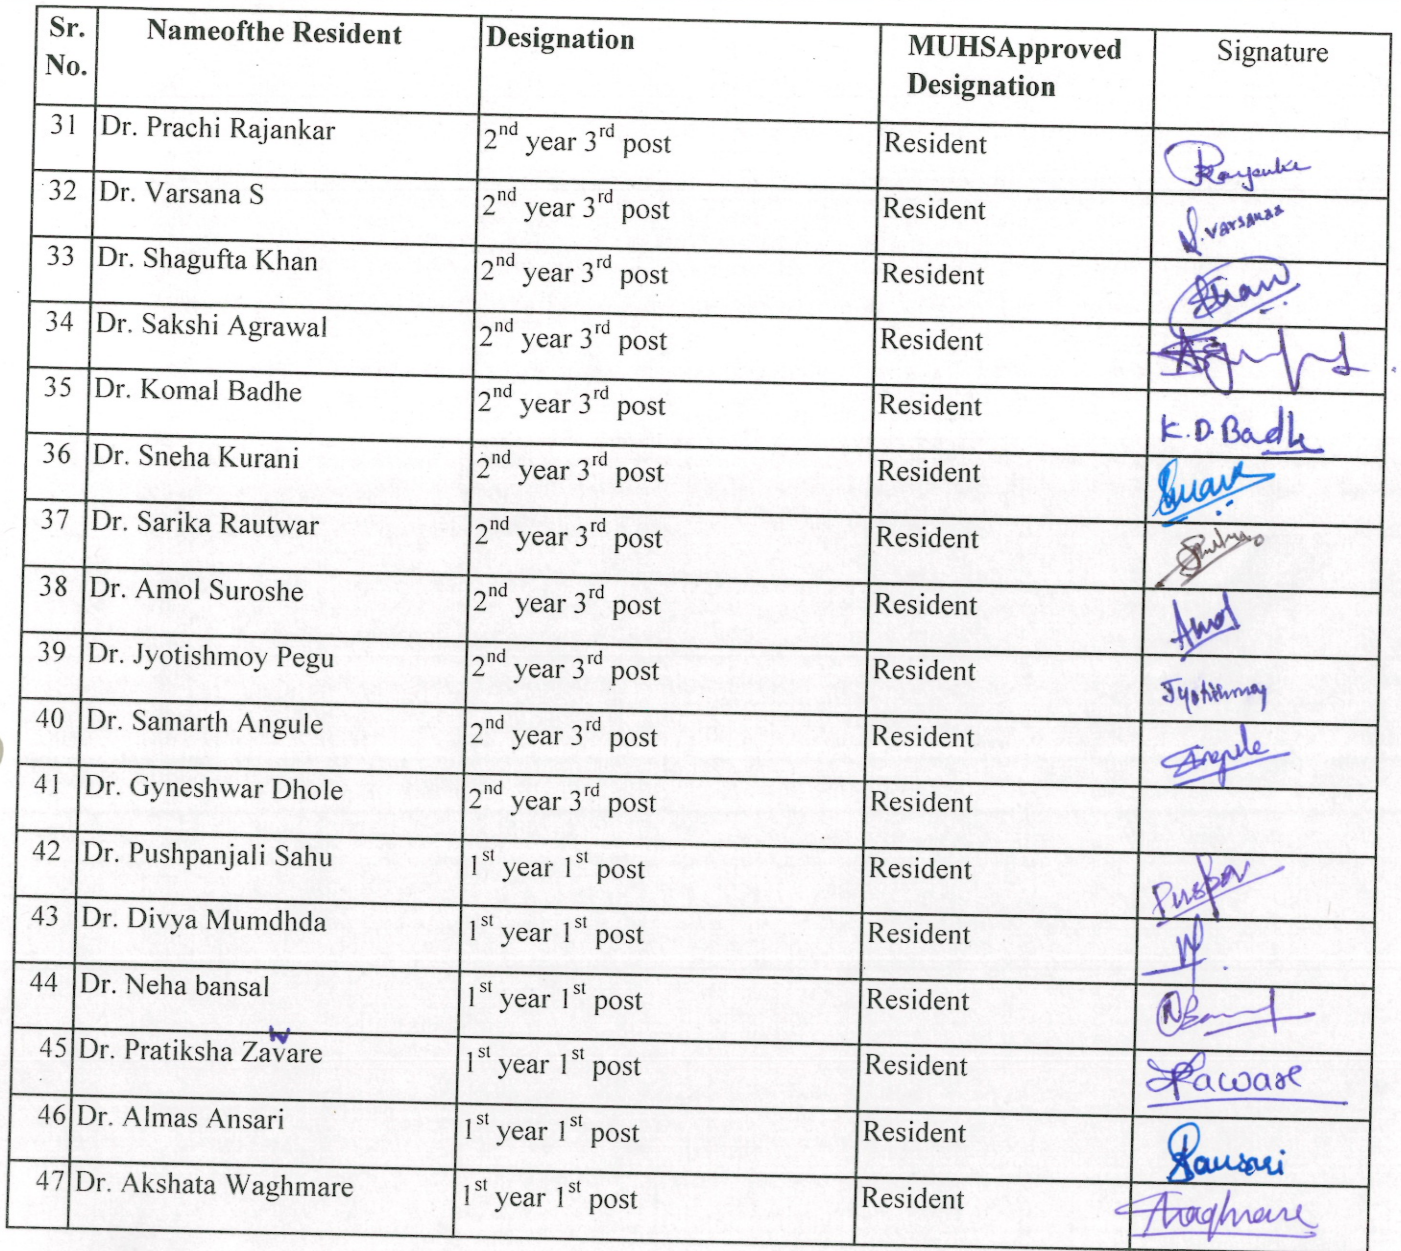 Sr. No. Nameofthe Resident Designation MUHSApproved Designation Signature
31 Dr. Prachi Rajankar 2nd year 3rd post Resident
32 Dr. Varsana S 2nd year 3rd post Resident S.varsanaa
33 Dr. Shagufta Khan 2nd year 3rd post Resident
34 Dr. Sakshi Agrawal 2nd year 3rd post Resident
35 Dr. Komal Badhe 2nd year 3rd post Resident K.D.Badhe
36 Dr. Sneha Kurani 2nd year 3rd post Resident
37 Dr. Sarika Rautwar 2nd year 3rd post Resident
38 Dr. Amol Suroshe 2nd year 3rd post Resident Amol
39 Dr. Jyotishmoy Pegu 2nd year 3rd post Resident Jyotishmoy
40 Dr. Samarth Angule 2nd year 3rd post Resident
41 Dr. Gyneshwar Dhole 2nd year 3rd post Resident
42 Dr. Pushpanjali Sahu 1st year 1st post Resident
43 Dr. Divya Mumdhda 1st year 1st post Resident
44 Dr. Neha bansal 1st year 1st post Resident
w
45 Dr. Pratiksha Zavare 1st year 1st post Resident
46 Dr. Almas Ansari 1st year 1st post Resident
47 Dr. Akshata Waghmare 1st year 1st post Resident